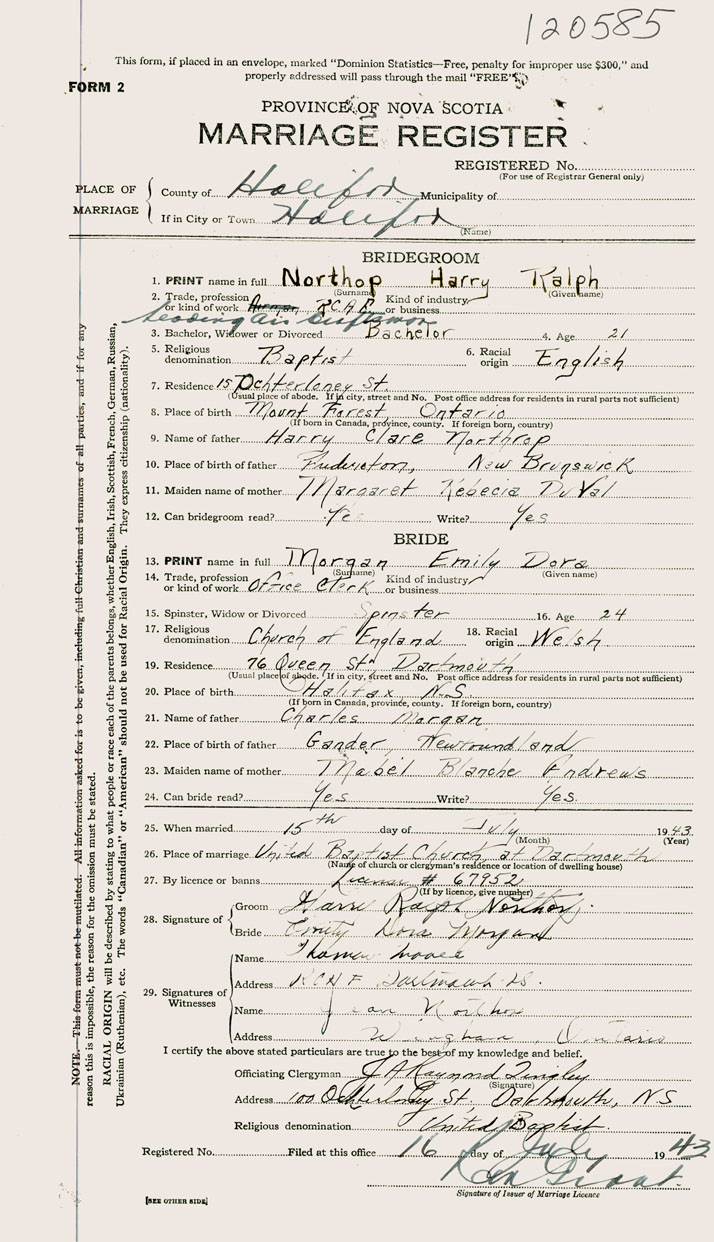 120585
This form, if placed in an envelope, marked "Dominion Statistics—Free, penalty for improper use $300," and
properly addressed will pass through the mail "FREE".
FORM 2
PROVINCE OF NOVA SCOTIA
MARRIAGE REGISTER
REGISTERED No.
(For use of Registrar General only)
PLACE OF MARRIAGE
County of Halifax Municipality of
If in City or Town Halifax
(Name)
BRIDEGROOM
1. PRINT name in full Northop Harry Ralph
(Surname) (Given name)
2. Trade, profession or kind of work R.C.A.F. Kind of industry or business
Leading air craftsman
3. Bachelor, Widower or Divorced Bachelor 4. Age 21
5. Religious denomination Baptist 6. Racial origin English
7. Residence 15 Ochterloney St.
(Usual place of abode. If in city, street and No. Post office address for residents in rural parts not sufficient)
8. Place of birth Mount Forest, Ontario
(If born in Canada, province, county. If foreign born, country)
9. Name of father Harry Clare Northrop
10. Place of birth of father New Brunswick
11. Maiden name of mother Margaret Rebecia DuVal
12. Can bridegroom read? Yes Write? Yes
BRIDE
13. PRINT name in full Morgan Emily Dora
(Surname) (Given name)
14. Trade, profession or kind of work Office Clerk Kind of industry or business
15. Spinster, Widow or Divorced Spinster 16. Age 24
17. Religious denomination Church of England 18. Racial origin Welsh
19. Residence 76 Queen St. Dartmouth
(Usual place of abode. If in city, street and No. Post office address for residents in rural parts not sufficient)
20. Place of birth Halifax N.S.
(If born in Canada, province, county. If foreign born, country)
21. Name of father Charles Morgan
22. Place of birth of father Gander, Newfoundland
23. Maiden name of mother Mabel Blanche Andrews
24. Can bride read? Yes Write? Yes.
25. When married 15th day of July 1943
(Month) (Year)
26. Place of marriage United Baptist Church at Dartmouth
(Name of church or clergyman's residence or location of dwelling house)
27. By licence or banns License # 67952
(If by licence, give number)
28. Signature of
Groom Harry Ralph Northop.
Bride Emily Dora Morgan
29. Signatures of Witnesses
Name Thomas
Address Dartmouth NS.
Name Jean Northop
Address Wingham, Ontario
I certify the above stated particulars are true to the best of my knowledge and belief.
Officiating Clergyman J A Raymond Tingley
(Signature)
Address 100 Ochterloney St, Dartmouth, NS
Religious denomination United Baptist.
Registered No. Filed at this office 16 day of July 1943
Signature of Issuer of Marriage Licence
[SEE OTHER SIDE]
NOTE.—This form must not be mutilated. All information asked for is to be given, including full Christian and surnames of all parties, and if for any
reason this is impossible, the reason for the omission must be stated.
RACIAL ORIGIN will be described by stating to what people or race each of the parents belongs, whether English, Irish, Scottish, French, German, Russian,
Ukrainian (Ruthenian), etc. The words "Canadian" or "American" should not be used for Racial Origin. They express citizenship (nationality).